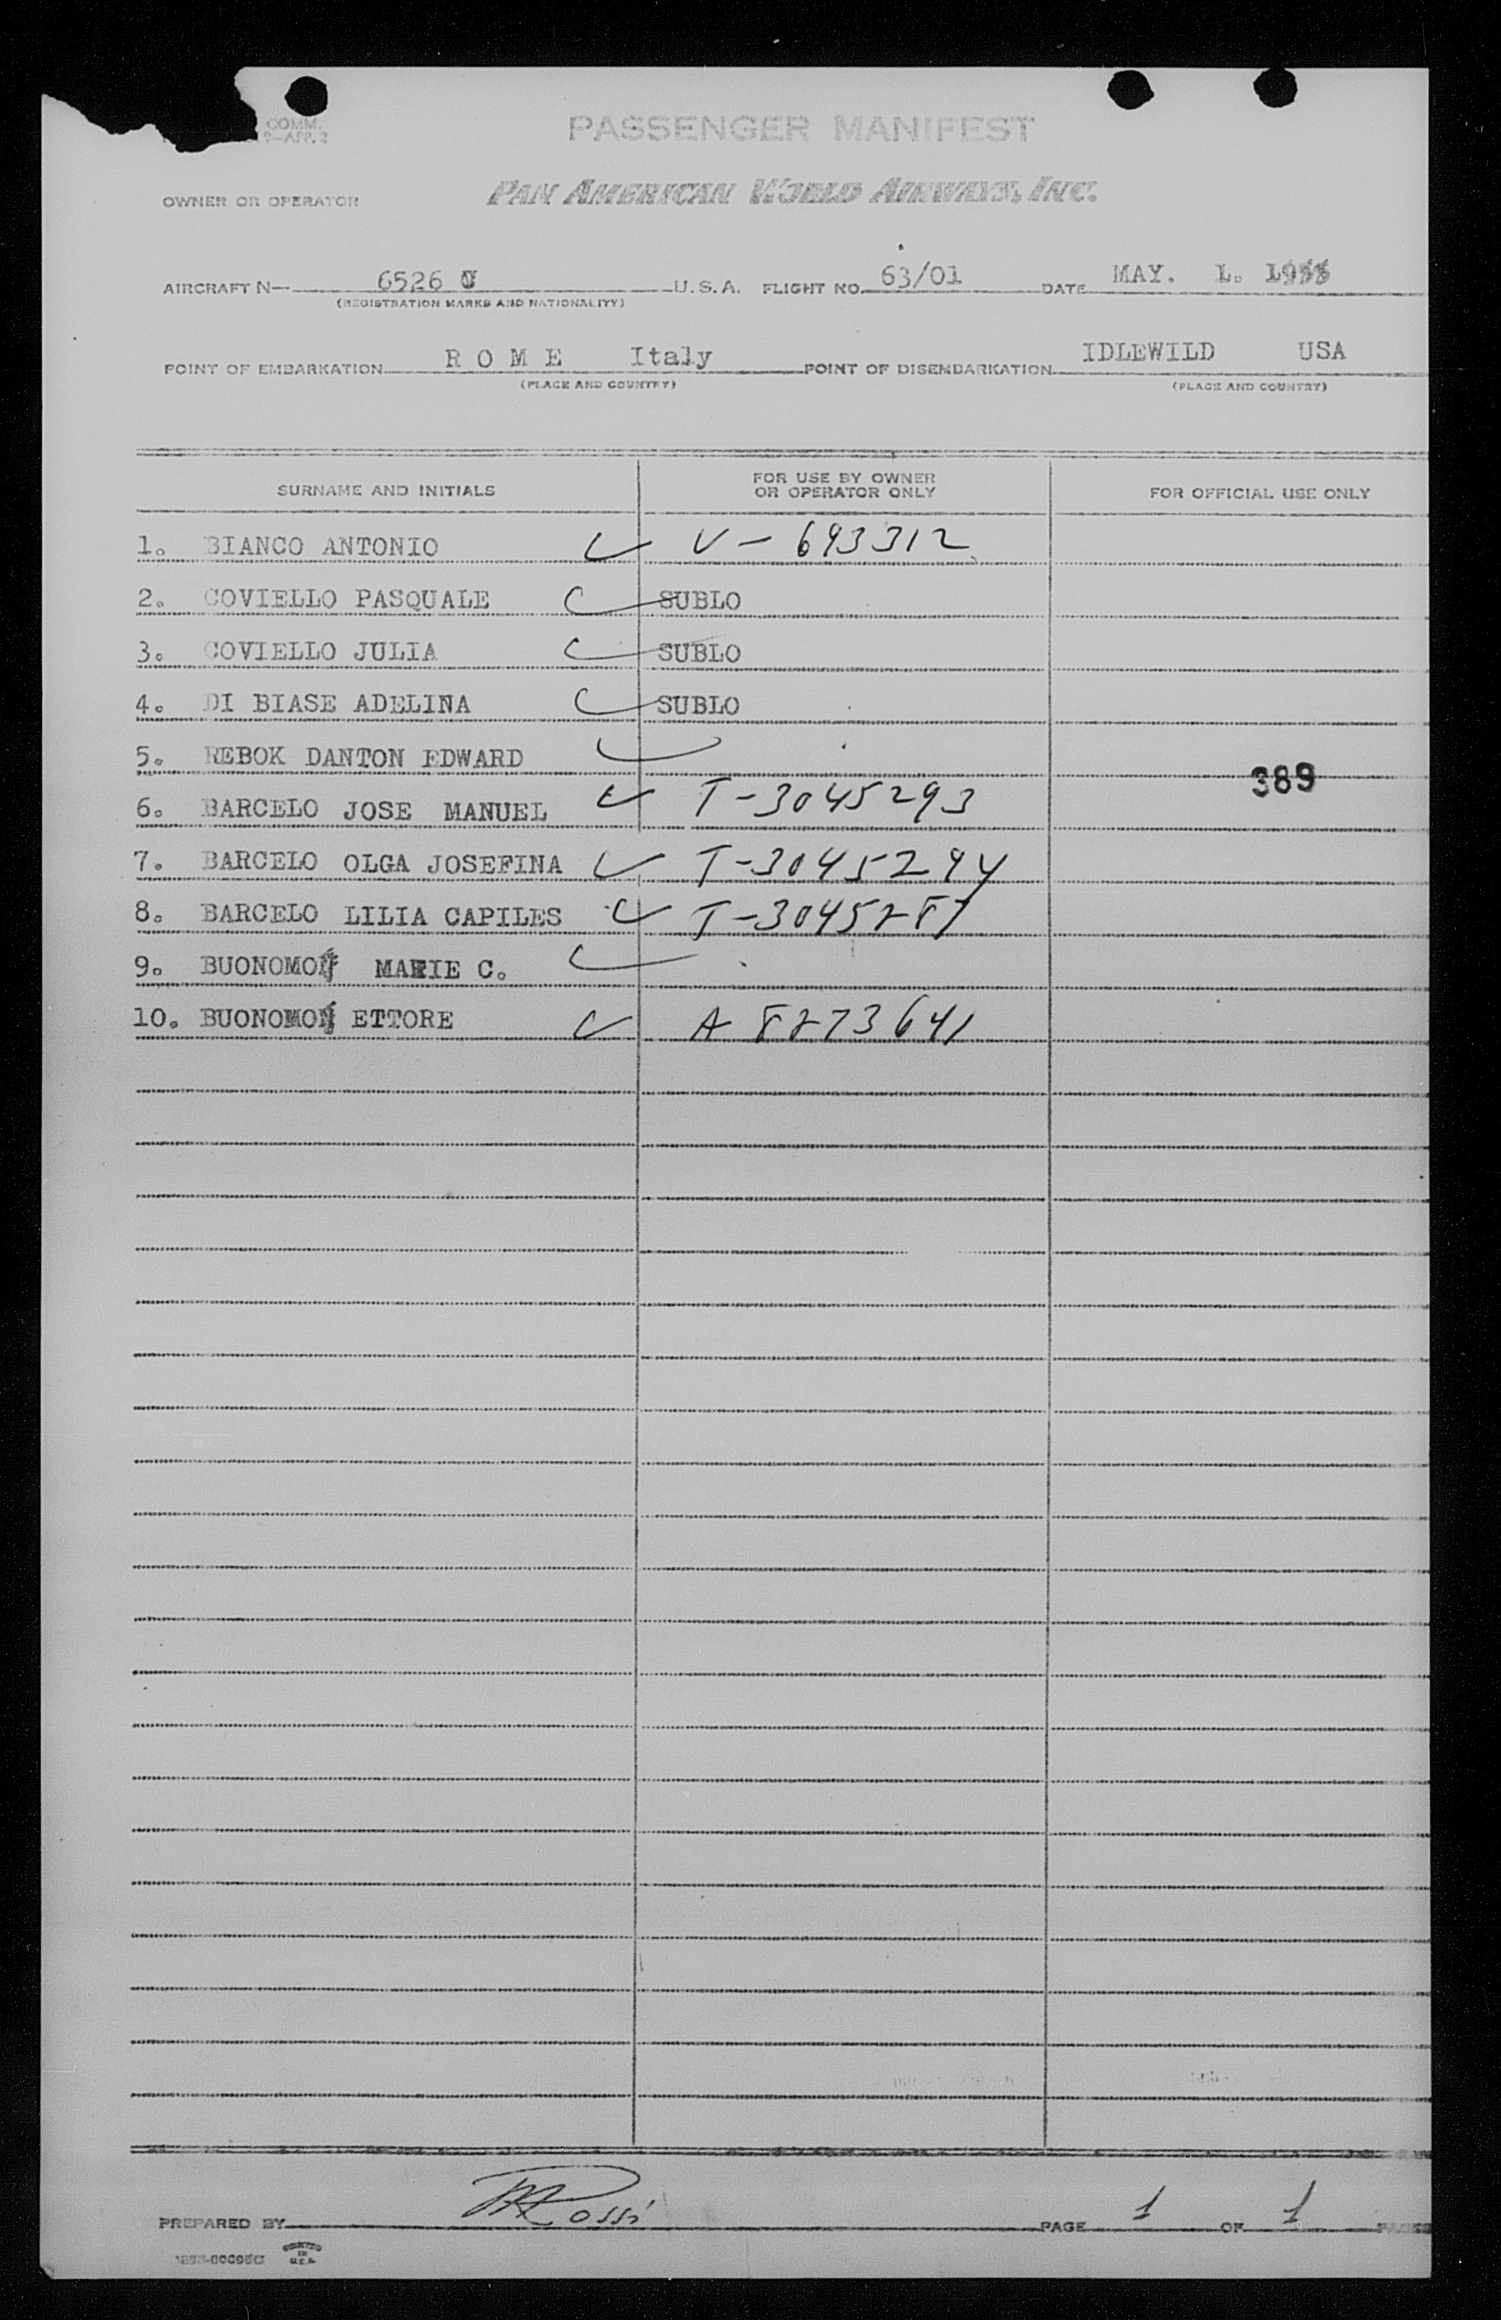 COMM.
PASSENGER MANIFEST
OWNER OR OPERATOR PAN AMERICAN WORLD AIRWAYS, INC.
AIRCRAFT N— 6526 C U.S.A. FLIGHT NO. 63/01 DATE MAY. 1. 1955
(REGISTRATION MARKS AND NATIONALITY)
POINT OF EMBARKATION R O M E Italy POINT OF DISEMBARKATION IDLEWILD USA
(PLACE AND COUNTRY) (PLACE AND COUNTRY)
SURNAME AND INITIALS FOR USE BY OWNER OR OPERATOR ONLY FOR OFFICIAL USE ONLY
1. BIANCO ANTONIO V - 693312
2. COVIELLO PASQUALE SUBLO
3. COVIELLO JULIA SUBLO
4. DI BIASE ADELINA SUBLO
5. REBOK DANTON EDWARD
389
6. BARCELO JOSE MANUEL T-3045293
7. BARCELO OLGA JOSEFINA T-3045294
8. BARCELO LILIA CAPILES T-3045287
9. BUONOMO MARIE C.
10. BUONOMO ETTORE A 8273641
PREPARED BY Rossi PAGE 1 OF 1 PAGES
PRINTED IN U.S.A.